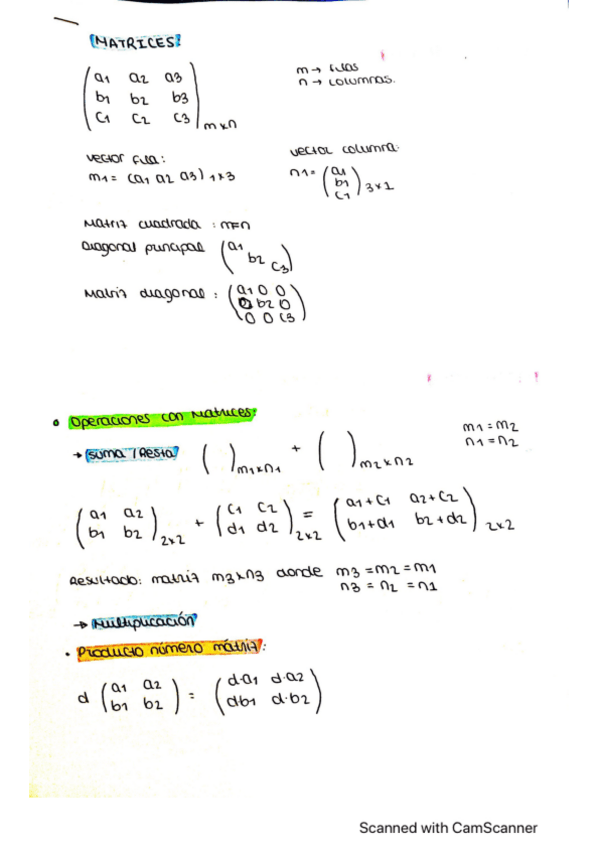 MATRICES:
(a1 a2 a3
b1 b2 b3
c1 c2 c3) mxn
m → filas
n → columnas.
vector fila:
m1 = (a1 a2 a3) 1x3
vector columna:
n1 = (a1
b1
c1) 3x1
Matriz cuadrada : m=n
Diagonal principal (a1
b2
c3)
Matriz diagonal : (a1 0 0
0 b2 0
0 0 c3)
Operaciones con Matrices:
→ Suma / Resta ( ) m1xn1 + ( ) m2xn2
m1 = m2
n1 = n2
(a1 a2
b1 b2) 2x2 + (c1 c2
d1 d2) 2x2 = (a1+c1 a2+c2
b1+d1 b2+d2) 2x2
Resultado: matriz m3xn3 donde m3 = m2 = m1
n3 = n2 = n1
→ Multiplicación
• Producto número mátriz:
d (a1 a2
b1 b2) = (d·a1 d·a2
d·b1 d·b2)
Scanned with CamScanner